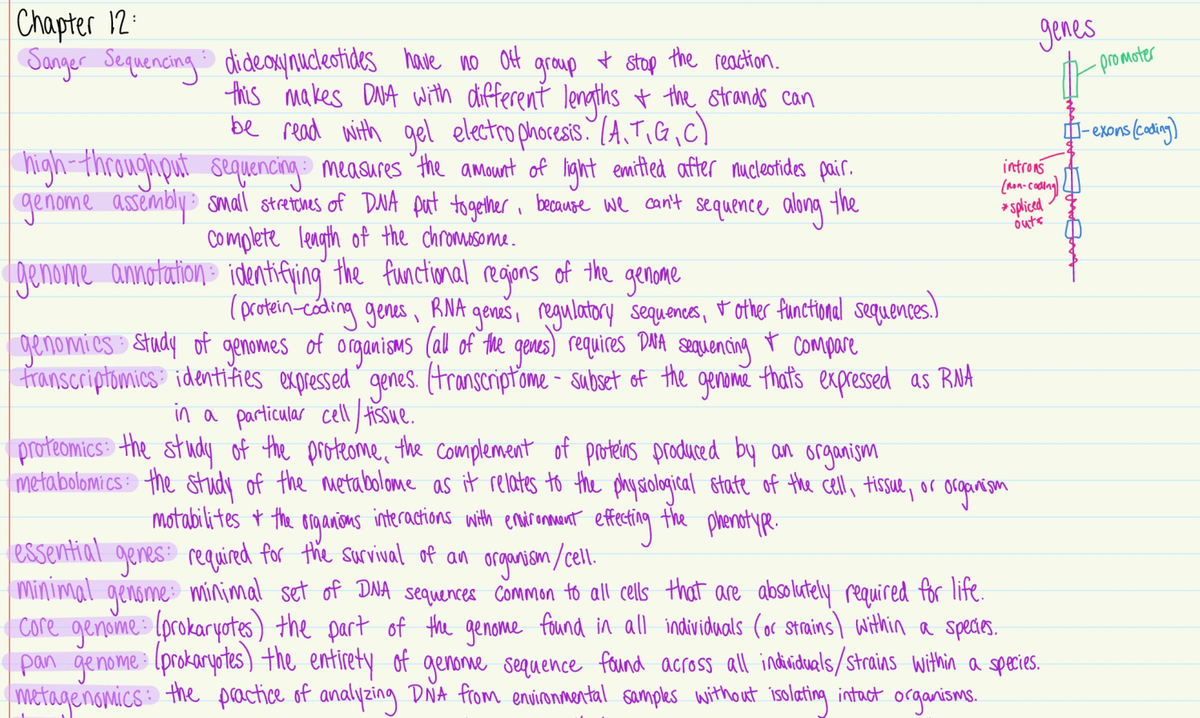 Chapter 12:
Sanger Sequencing: dideoxynucleotides have no OH group + stop the reaction.
this makes DNA with different lengths + the strands can
be read with gel electrophoresis. (A, T, G, C)
high-throughput sequencing: measures the amount of light emitted after nucleotides pair.
genome assembly: small stretches of DNA put together, because we can't sequence along the
complete length of the chromosome.
genome annotation: identifying the functional regions of the genome
(protein-coding genes, RNA genes, regulatory sequences, + other functional sequences.)
genomics: study of genomes of organisms (all of the genes) requires DNA sequencing + compare
transcriptomics: identifies expressed genes. (transcriptome - subset of the genome that's expressed as RNA
in a particular cell/tissue.
proteomics: the study of the proteome, the complement of proteins produced by an organism
metabolomics: the study of the metabolome as it relates to the physiological state of the cell, tissue, or organism
motabilites + the organions interactions with environment effecting the phenotype.
essential genes: required for the survival of an organism/cell.
minimal genome: minimal set of DNA sequences common to all cells that are absolutely required for life.
core genome: (prokaryotes) the part of the genome found in all individuals (or strains) within a species.
pan genome: (prokaryotes) the entirety of genome sequence found across all individuals/strains within a species.
metagenomics: the practice of analyzing DNA from environmental samples without isolating intact organisms.
genes
promoter
exons (coding)
introns
(non-coding)
*spliced
out*